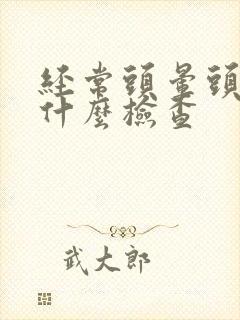 經常頭暈頭
什麼檢查
武大郎